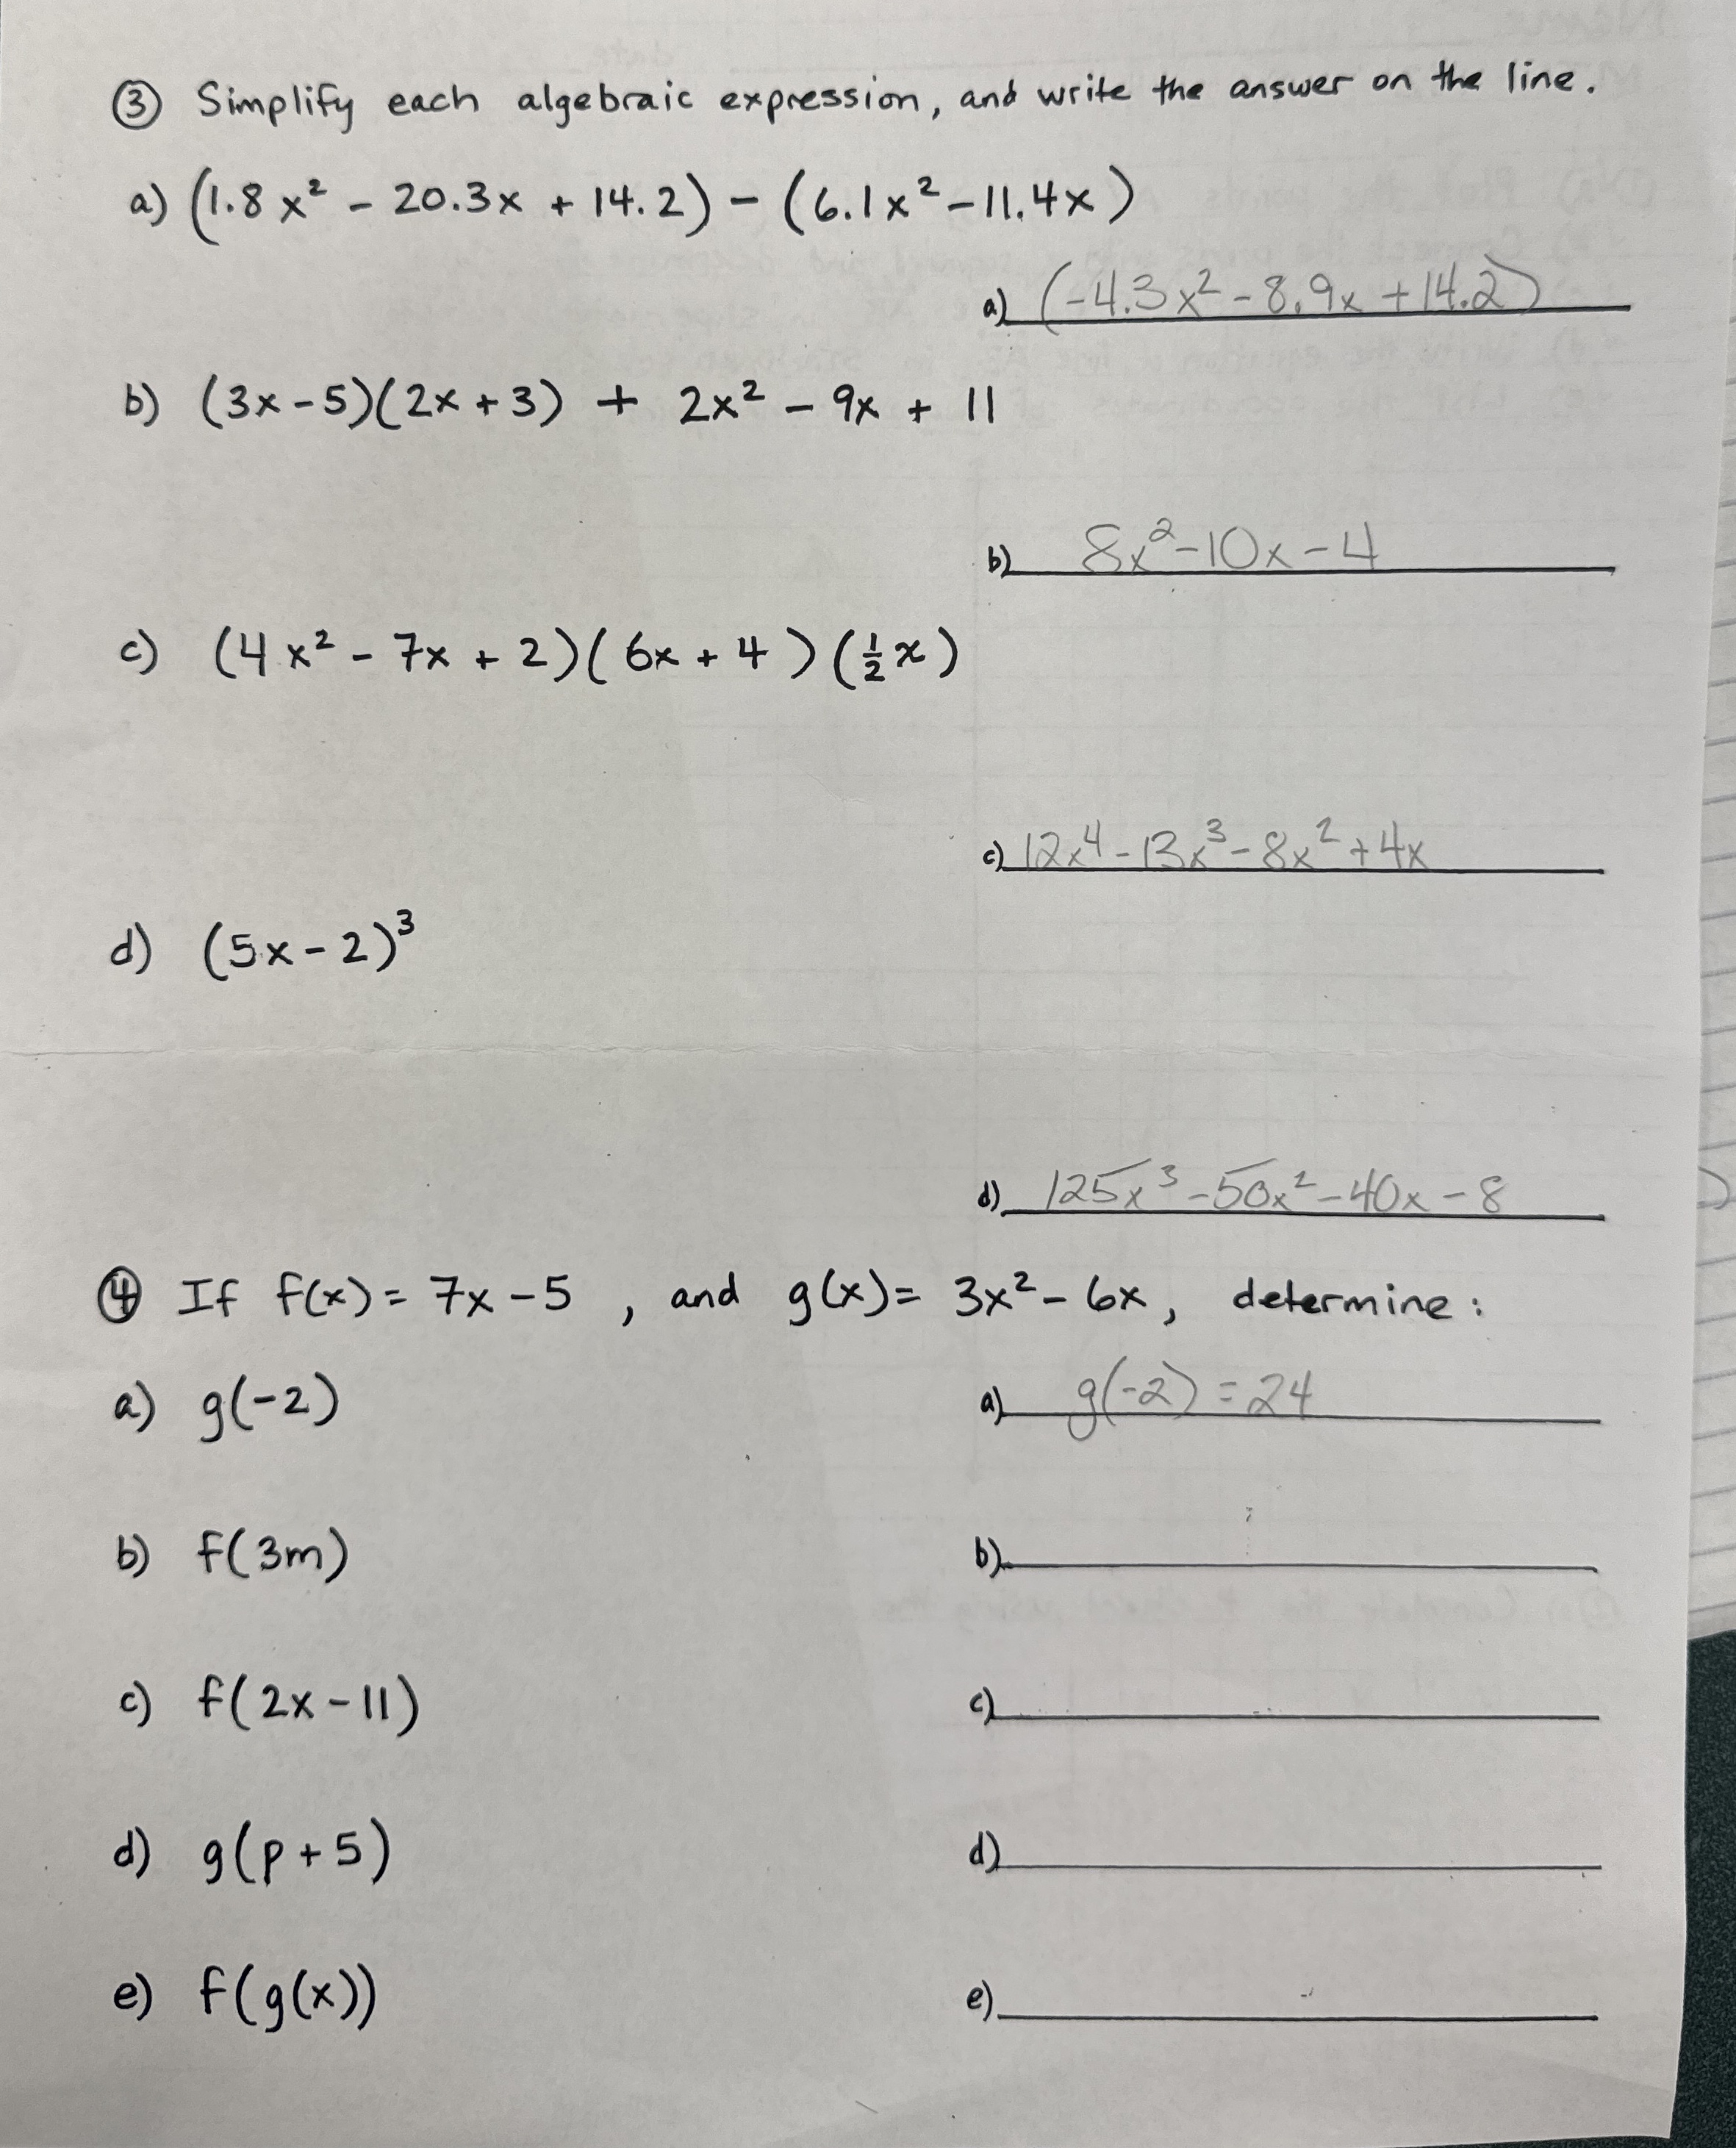 ③ Simplify each algebraic expression, and write the answer on the line.
a) (1.8x² - 20.3x + 14.2) - (6.1x² - 11.4x)
a) (-4.3x² - 8.9x + 14.2)
b) (3x - 5)(2x + 3) + 2x² - 9x + 11
b) 8x² - 10x - 4
c) (4x² - 7x + 2)(6x + 4)(½x)
c) 12x⁴ - 13x³ - 8x² + 4x
d) (5x - 2)³
d) 125x³ - 50x² - 40x - 8
④ If f(x) = 7x - 5, and g(x) = 3x² - 6x, determine:
a) g(-2) a) g(-2) = 24
b) f(3m) b)
c) f(2x - 11) c)
d) g(p + 5) d)
e) f(g(x)) e)